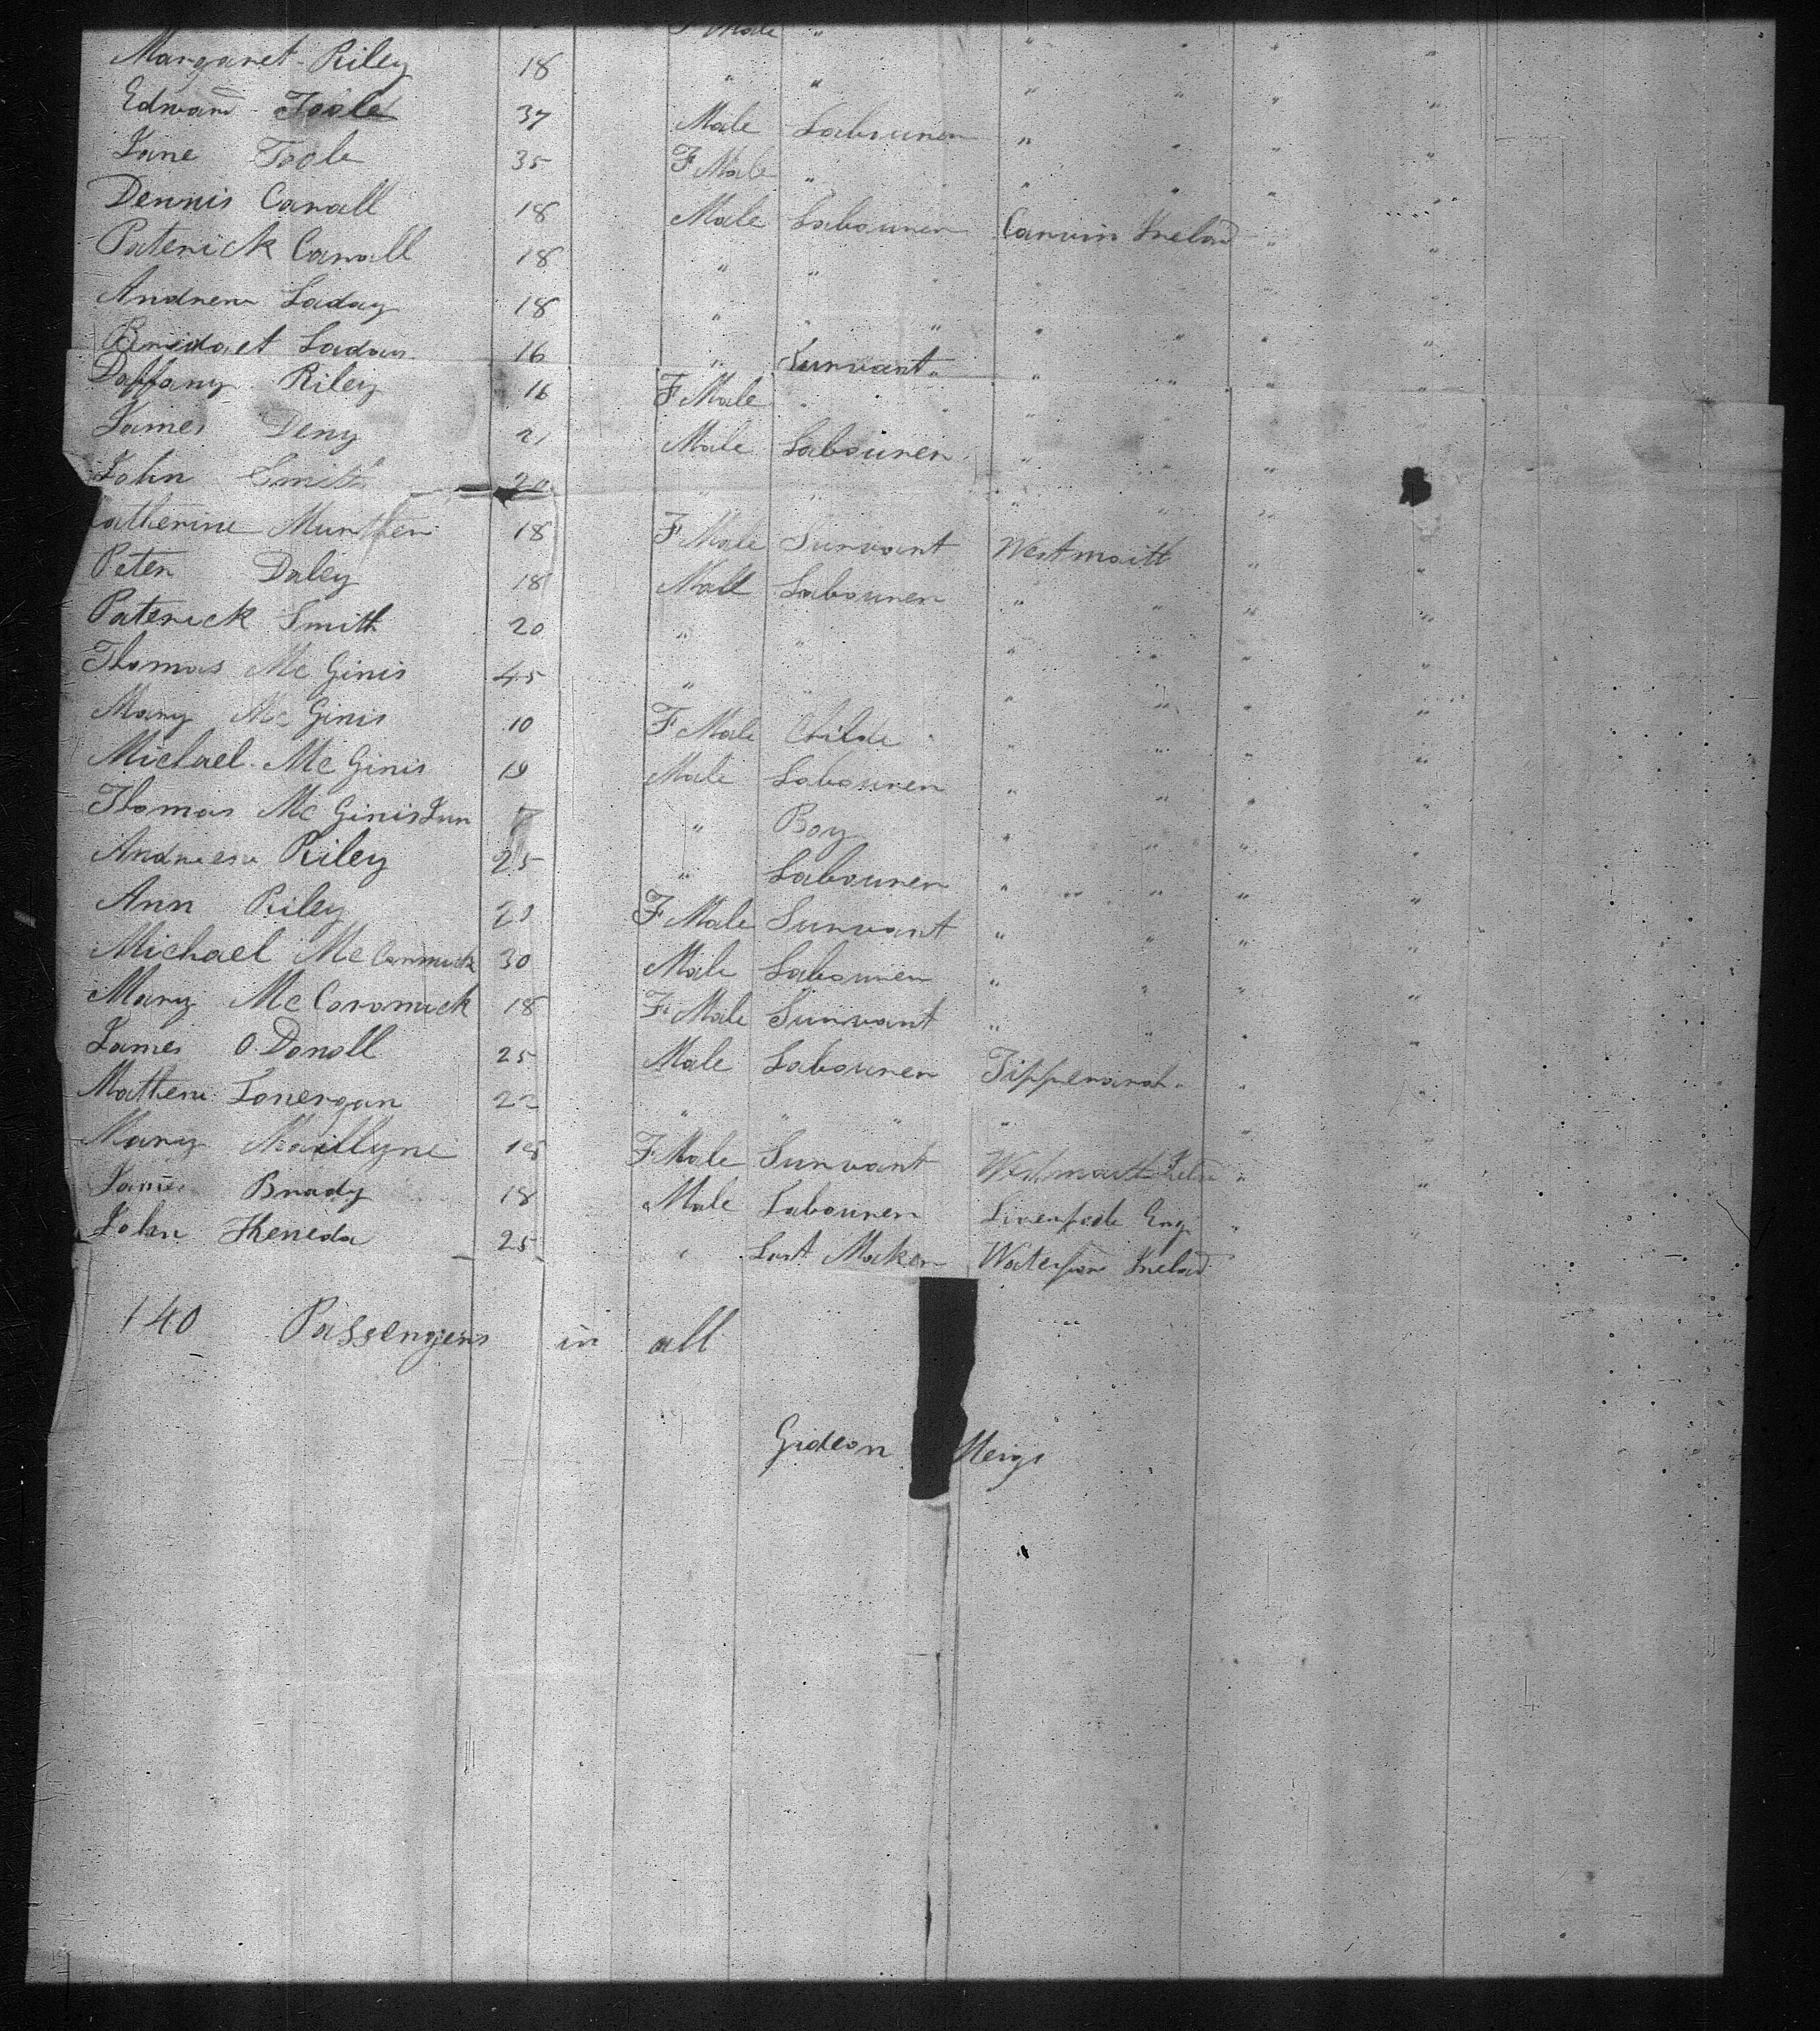 F Male " " " " "
Margaret Riley 18 " " " " " "
Edward Toole 37 Male Labourer " " " "
Jane Toole 35 F Male " " " " "
Dennis Carall 18 Male Labourer Carvin Ireland " "
Paterick Carall 18 " " " " " "
Andrew Laday 18 " " " " " " "
Laday 16 " Survant " " " "
Daffany Riley 16 F Male " " " " "
James Deny 21 Male Labourer " " "
John Smith 20 " " " " "
atherine 18 F Male Survant Westmaitt " "
Peter Daley 18 Mall Labourer " " " "
Paterick Smith 20 " " " " " "
Thomas Mc Ginis 45 " " " " " "
Mary Mc Ginis 10 F Male Childe " " " "
Michael Mc Ginis 19 Male Labourer " " " "
Thomas Mc Ginis Jun " Boy " " " "
Andrew Riley 25 " Labourer " " " " "
Ann Riley F Male Survant " " " "
Michael Mc Carmick 30 Male Labourer " " " "
Mary Mc Coromick 18 F Male Survant " " " "
James O Donoll 25 Male Labourer Tipperarah " "
Mathew Lonergan 22 " " " " " "
Mary 18 F Male Survant Westmaitt " "
James Brady 18 Male Labourer Liverpole Eng "
John Keneda 25 " Last Maker Waterford Ireland
140 Passengers in all
Gideon Meigs